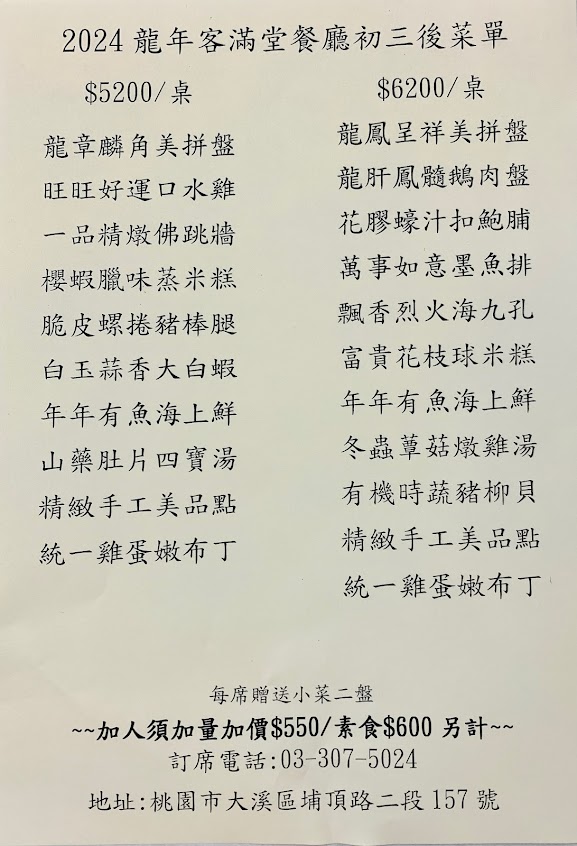 2024龍年客滿堂餐廳初三後菜單
$5200/桌
龍章麟角美拼盤
旺旺好運口水雞
一品精燉佛跳牆
櫻蝦臘味蒸米糕
脆皮螺捲豬棒腿
白玉蒜香大白蝦
年年有魚海上鮮
山藥肚片四寶湯
精緻手工美品點
統一雞蛋嫩布丁
$6200/桌
龍鳳呈祥美拼盤
龍肝鳳髓鵝肉盤
花膠蠔汁扣鮑脯
萬事如意墨魚排
飄香烈火海九孔
富貴花枝球米糕
年年有魚海上鮮
冬蟲蕈菇燉雞湯
有機時蔬豬柳貝
精緻手工美品點
統一雞蛋嫩布丁
每席贈送小菜二盤
~~加人須加量加價$550/素食$600 另計~~
訂席電話:03-307-5024
地址:桃園市大溪區埔頂路二段157號